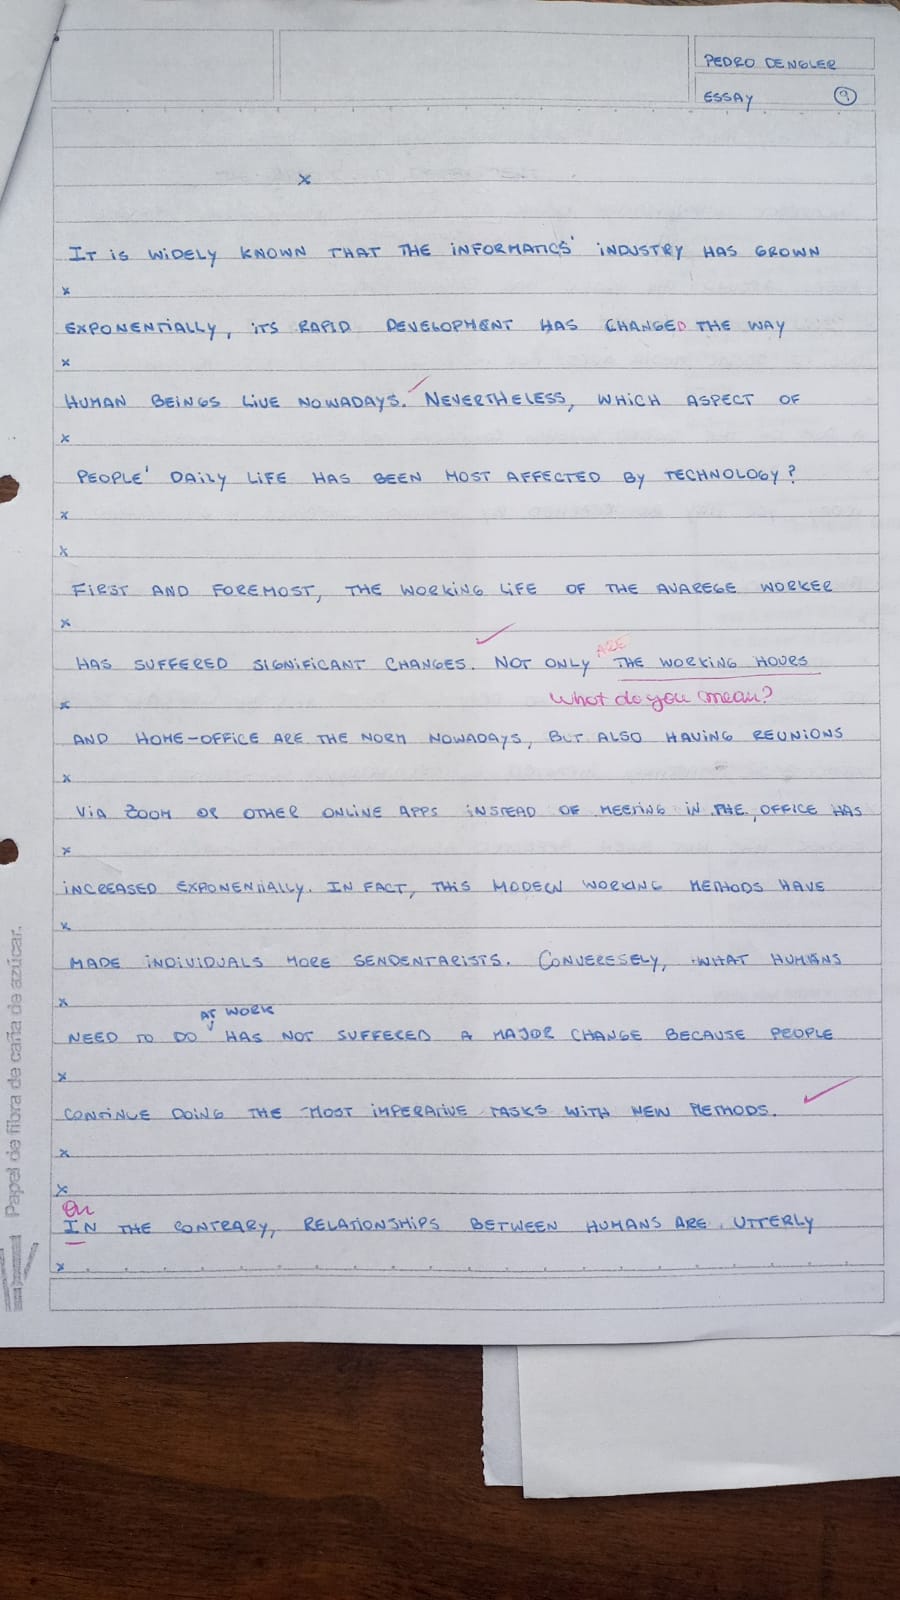 PEDRO DENGLER
ESSAY 9
x
IT IS WIDELY KNOWN THAT THE INFORMATICS' INDUSTRY HAS GROWN
x
EXPONENTIALLY, ITS RAPID DEVELOPMENT HAS CHANGED THE WAY
x
HUMAN BEINGS LIVE NOWADAYS. NEVERTHELESS, WHICH ASPECT OF
x
PEOPLE' DAILY LIFE HAS BEEN MOST AFFECTED BY TECHNOLOGY?
x
x
FIRST AND FOREMOST, THE WORKING LIFE OF THE AVAREGE WORKER
x
ARE
HAS SUFFERED SIGNIFICANT CHANGES. NOT ONLY THE WORKING HOURS
What do you mean?
x
AND HOME-OFFICE ARE THE NORM NOWADAYS, BUT ALSO HAVING REUNIONS
x
VIA ZOOM OR OTHER ONLINE APPS INSTEAD OF MEETING IN THE OFFICE HAS
x
INCREASED EXPONENTIALLY. IN FACT, THIS MODERN WORKING METHODS HAVE
x
MADE INDIVIDUALS MORE SENDENTARISTS. CONVERESELY, WHAT HUMANS
x
AT WORK
NEED TO DO HAS NOT SUFFERED A MAJOR CHANGE BECAUSE PEOPLE
x
CONTINUE DOING THE MOST IMPERATIVE TASKS WITH NEW METHODS.
x
x
On
IN THE CONTRARY, RELATIONSHIPS BETWEEN HUMANS ARE UTTERLY
x
Papel de fibra de caña de azúcar.